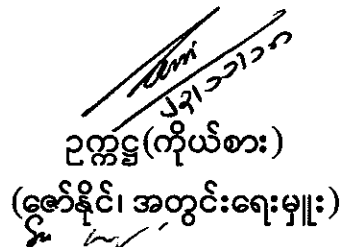 ၂၃|၁၁|၁၈
ဥက္ကဋ္ဌ(ကိုယ်စား)
(ဇော်နိုင်၊ အတွင်းရေးမှူး)